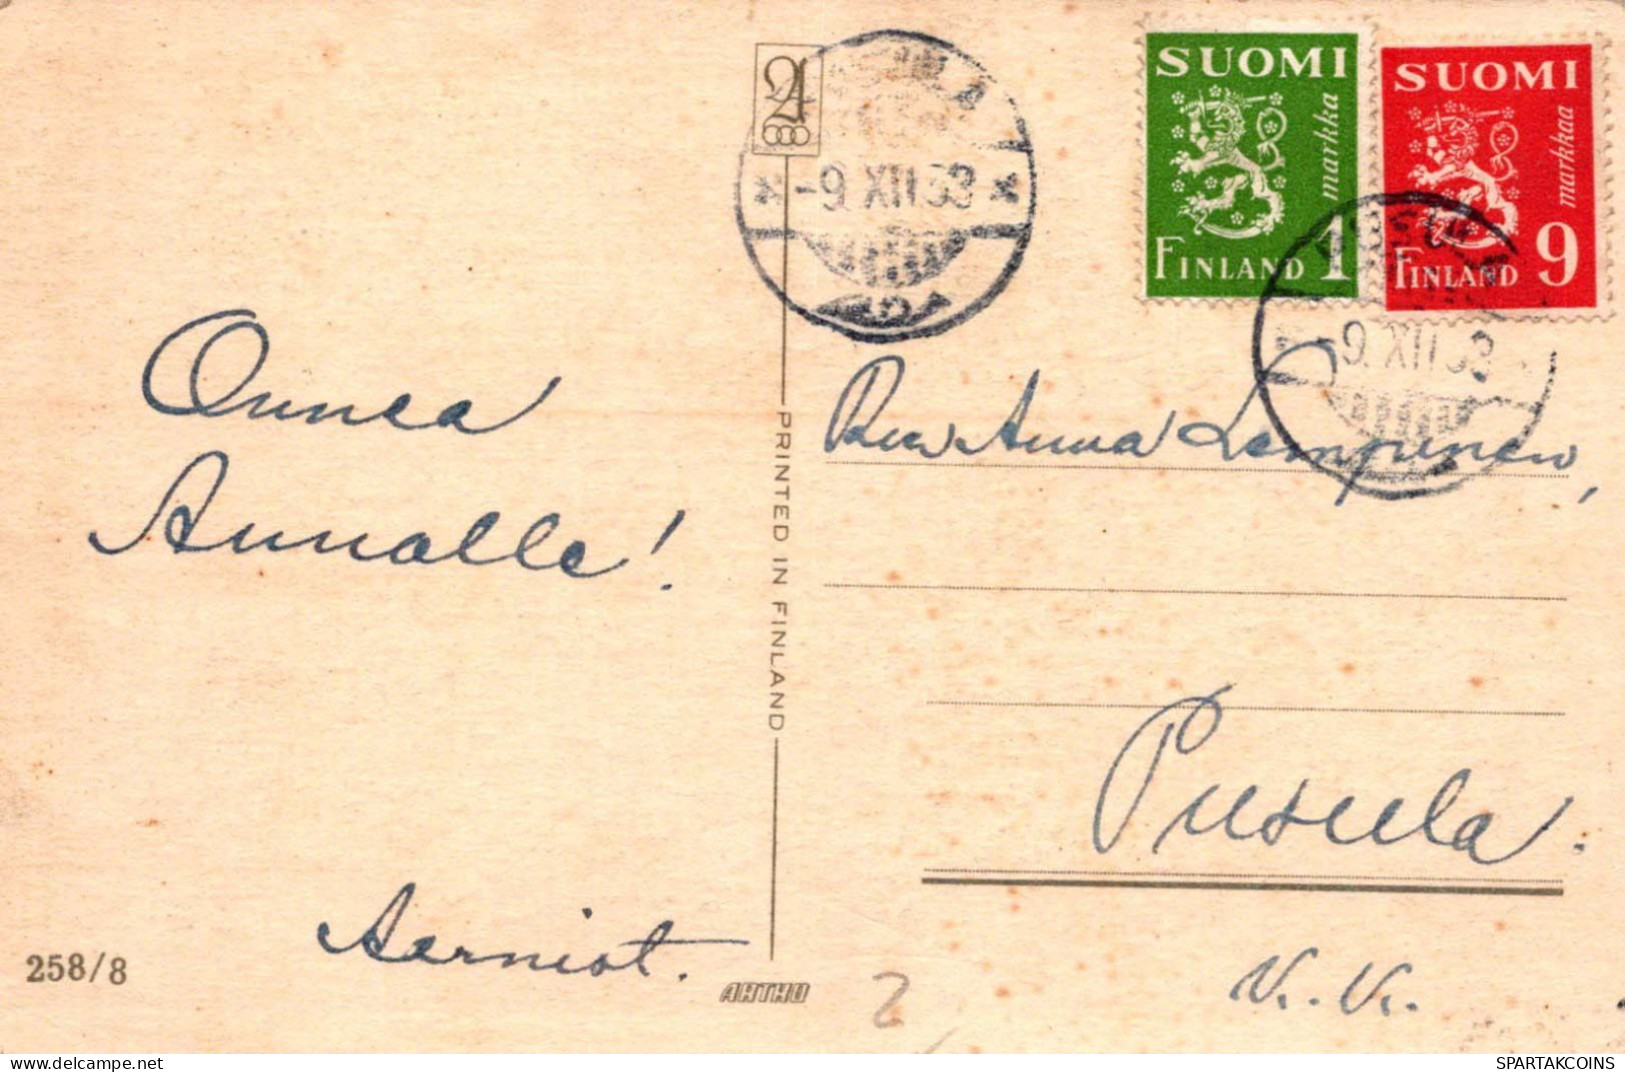 SUOMI
markka
FINLAND 1
SUOMI
markkaa
FINLAND 9
-9. XII 53
-9. XII 53
Onnea
Annalle!
Aarniot.
258/8
PRINTED IN FINLAND
ARTKO
Rva Anna Lampinen,
Pusula.
V. V.
2
SPARTAKCOINS